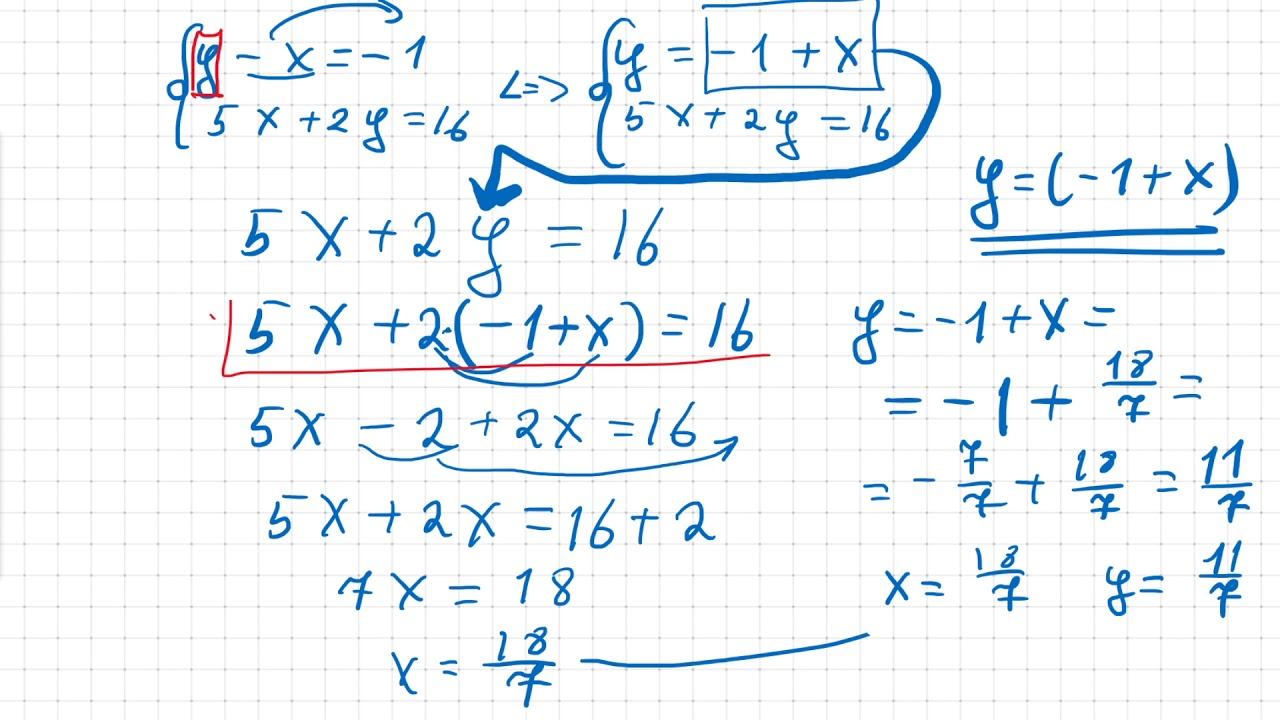 y - x = - 1 <=> y = - 1 + x
5 x + 2 y = 16 5 x + 2 y = 16
y = (- 1 + x)
5 x + 2 y = 16
5 x + 2 · (- 1 + x) = 16
5x - 2 + 2x = 16
5x + 2x = 16 + 2
7x = 18
x = 18/7
y = - 1 + x =
= - 1 + 18/7 =
= - 7/7 + 18/7 = 11/7
x = 18/7 y = 11/7